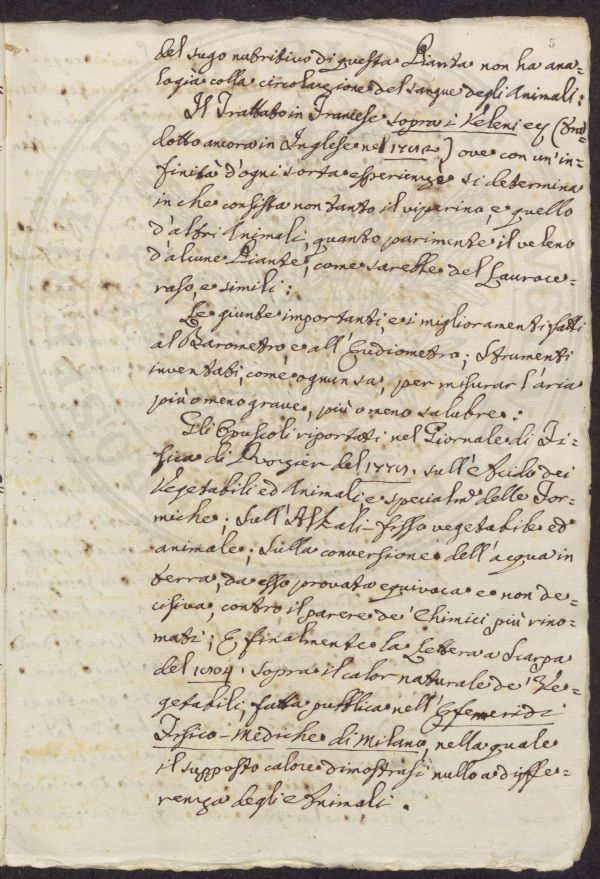 5
del sugo nutritivo di questa Pianta non ha ana=
logia colla circolazione del sangue degli Animali:
Il Trattato in Francese sopra i Veleni (Tra
dotto ancora in Inglese nel ) ove con un'in=
finità d'ogni sorta esperienze si determina
in che consista non tanto il viperino, e quello
d'altri Animali, quanto parimente il veleno
d'alcune Piante, come sarebbe del Lauroce=
raso, e simili:
Le giunte importanti, e i miglioramenti fatti
al Barometro e all'Eudiometro; Strumenti
inventati, come ognun sa, per misurar l'aria
più o meno grave, più o meno salubre:
Gli Opuscoli riportati nel Giornale di Fi=
sica di Rozier del sull'Acido dei
Vegetabili ed Animali e specialm. delle For=
miche; Sull'Alkali-fisso vegetabile ed
animale; Sulla conversione dell'acqua in
terra, da esso provata equivoca e non de=
cisiva, contro il parere de' Chimici più rino=
mati; E finalmente la Lettera a Scarpa
del sopra il calor naturale de' Ve=
getabili, fatta pubblica nell'Efemeridi
Fisico-Mediche di Milano, nella quale
il supposto calore dimostrasi nullo a diffe=
renza degli Animali.